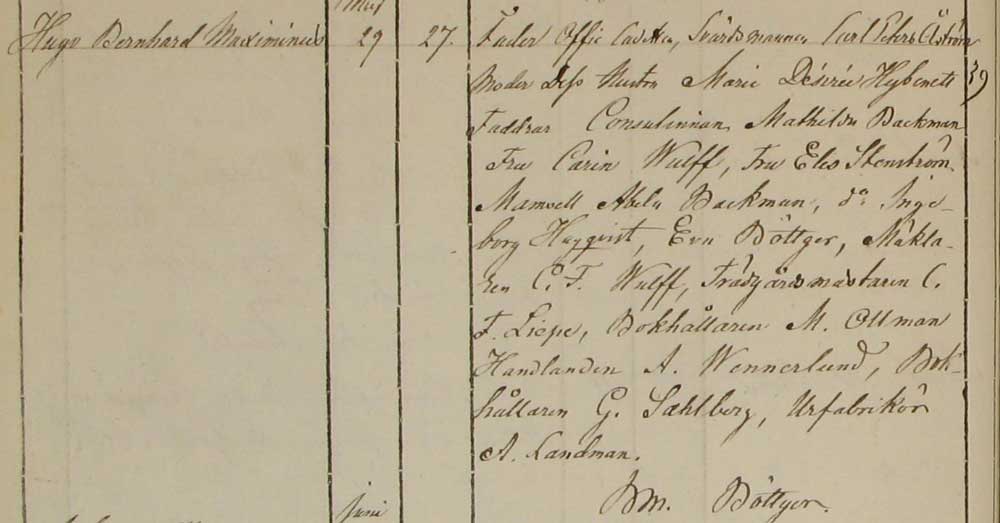 Maj
Hugo Bernhard Maximinus 29 27. Fader Offic Cadetten, Svärdsmannen Carl Peter Åström
Moder Dess Hustru Marie Désirée Hybenett 39
Faddrar Consulinnan Mathilda Backman
Fru Carin Wulff, Fru Elis Stenström
Mamsell Abela Backman, do Inge-
borg Hagqvist, Eva Böttger, Mäkla-
ren C. F. Wulff, Trädgårdsmästaren C.
F. Liepe, Bokhållaren M. Ollman
Handlanden A. Wennerlund, Bok-
hållaren G. Sahlberg, Urfabrikör
A. Landman.
Bm. Böttger.
Juni